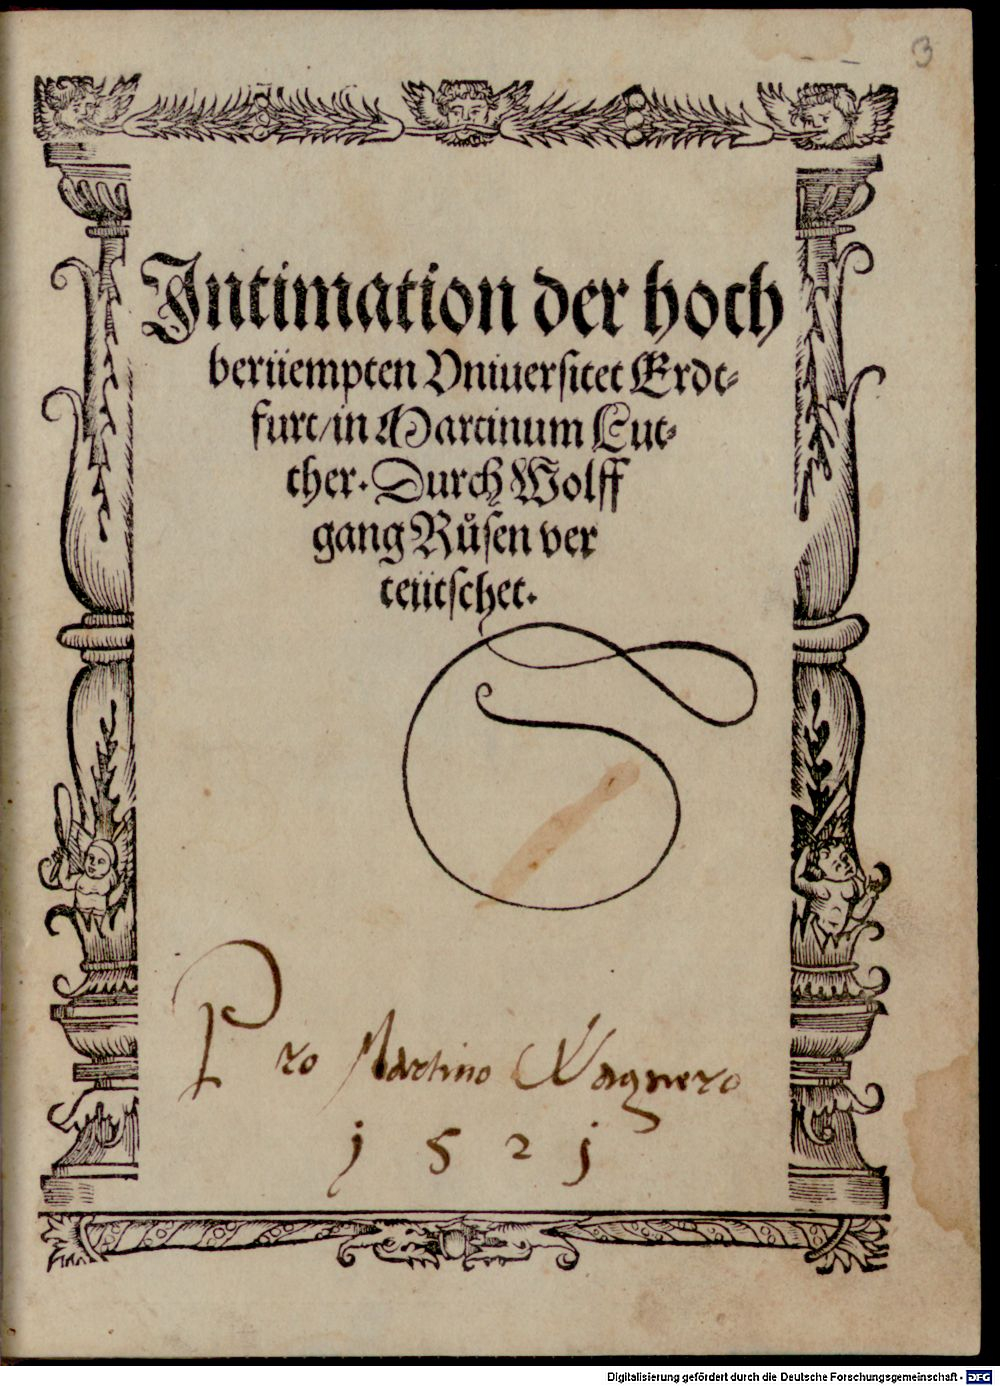 3
Intimation der hoch
berüempten Vniuersitet Erdt⸗
furt/ in Martinum Lut⸗
ther. Durch Wolff
gang Růsen ver
teütschet.
Pro Martino Wagnero
1521
Digitalisierung gefördert durch die Deutsche Forschungsgemeinschaft - DFG